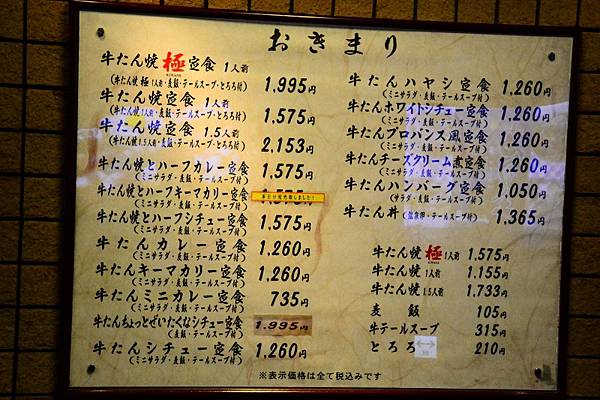 おきまり
牛たん焼 極 定食 1人前 1,995円
(牛たん焼 極 1人前・麦飯・テールスープ・とろろ付)
牛たん焼定食 1人前 1,575円
(牛たん焼1人前・麦飯・テールスープ・とろろ付)
牛たん焼定食 1.5人前 2,153円
(牛たん焼1.5人前・麦飯・テールスープ・とろろ付)
牛たん焼とハーフカレー定食 1,575円
(ミニサラダ・麦飯・テールスープ付)
牛たん焼とハーフキーマカリー定食
(ミニサラダ・麦飯・テールスープ付)
牛たん焼とハーフシチュー定食 1,575円
(ミニサラダ・麦飯・テールスープ付)
牛たんカレー定食 1,260円
(ミニサラダ・麦飯・テールスープ付)
牛たんキーマカリー定食 1,260円
(ミニサラダ・麦飯・テールスープ付)
牛たんミニカレー定食 735円
(ミニサラダ・麦飯・テールスープ付)
牛たんちょっとぜいたくなシチュー定食 1,995円
(麦飯・テールスープ付)
牛たんシチュー定食 1,260円
(ミニサラダ・麦飯・テールスープ付)
牛たんハヤシ定食 1,260円
(ミニサラダ・麦飯・テールスープ付)
牛たんホワイトシチュー定食 1,260円
(ミニサラダ・麦飯・テールスープ付)
牛たんプロバンス風定食 1,260円
(ミニサラダ・麦飯・テールスープ付)
牛たんチーズクリーム煮定食 1,260円
(ミニサラダ・麦飯・テールスープ付)
牛たんハンバーグ定食 1,050円
(ミニサラダ・麦飯・テールスープ付)
牛たん丼 (温泉卵・テールスープ付) 1,365円
牛たん焼 極 1人前 1,575円
牛たん焼 1人前 1,155円
牛たん焼 1.5人前 1,733円
麦飯 105円
牛テールスープ 315円
とろろ 210円
※表示価格は全て税込みです